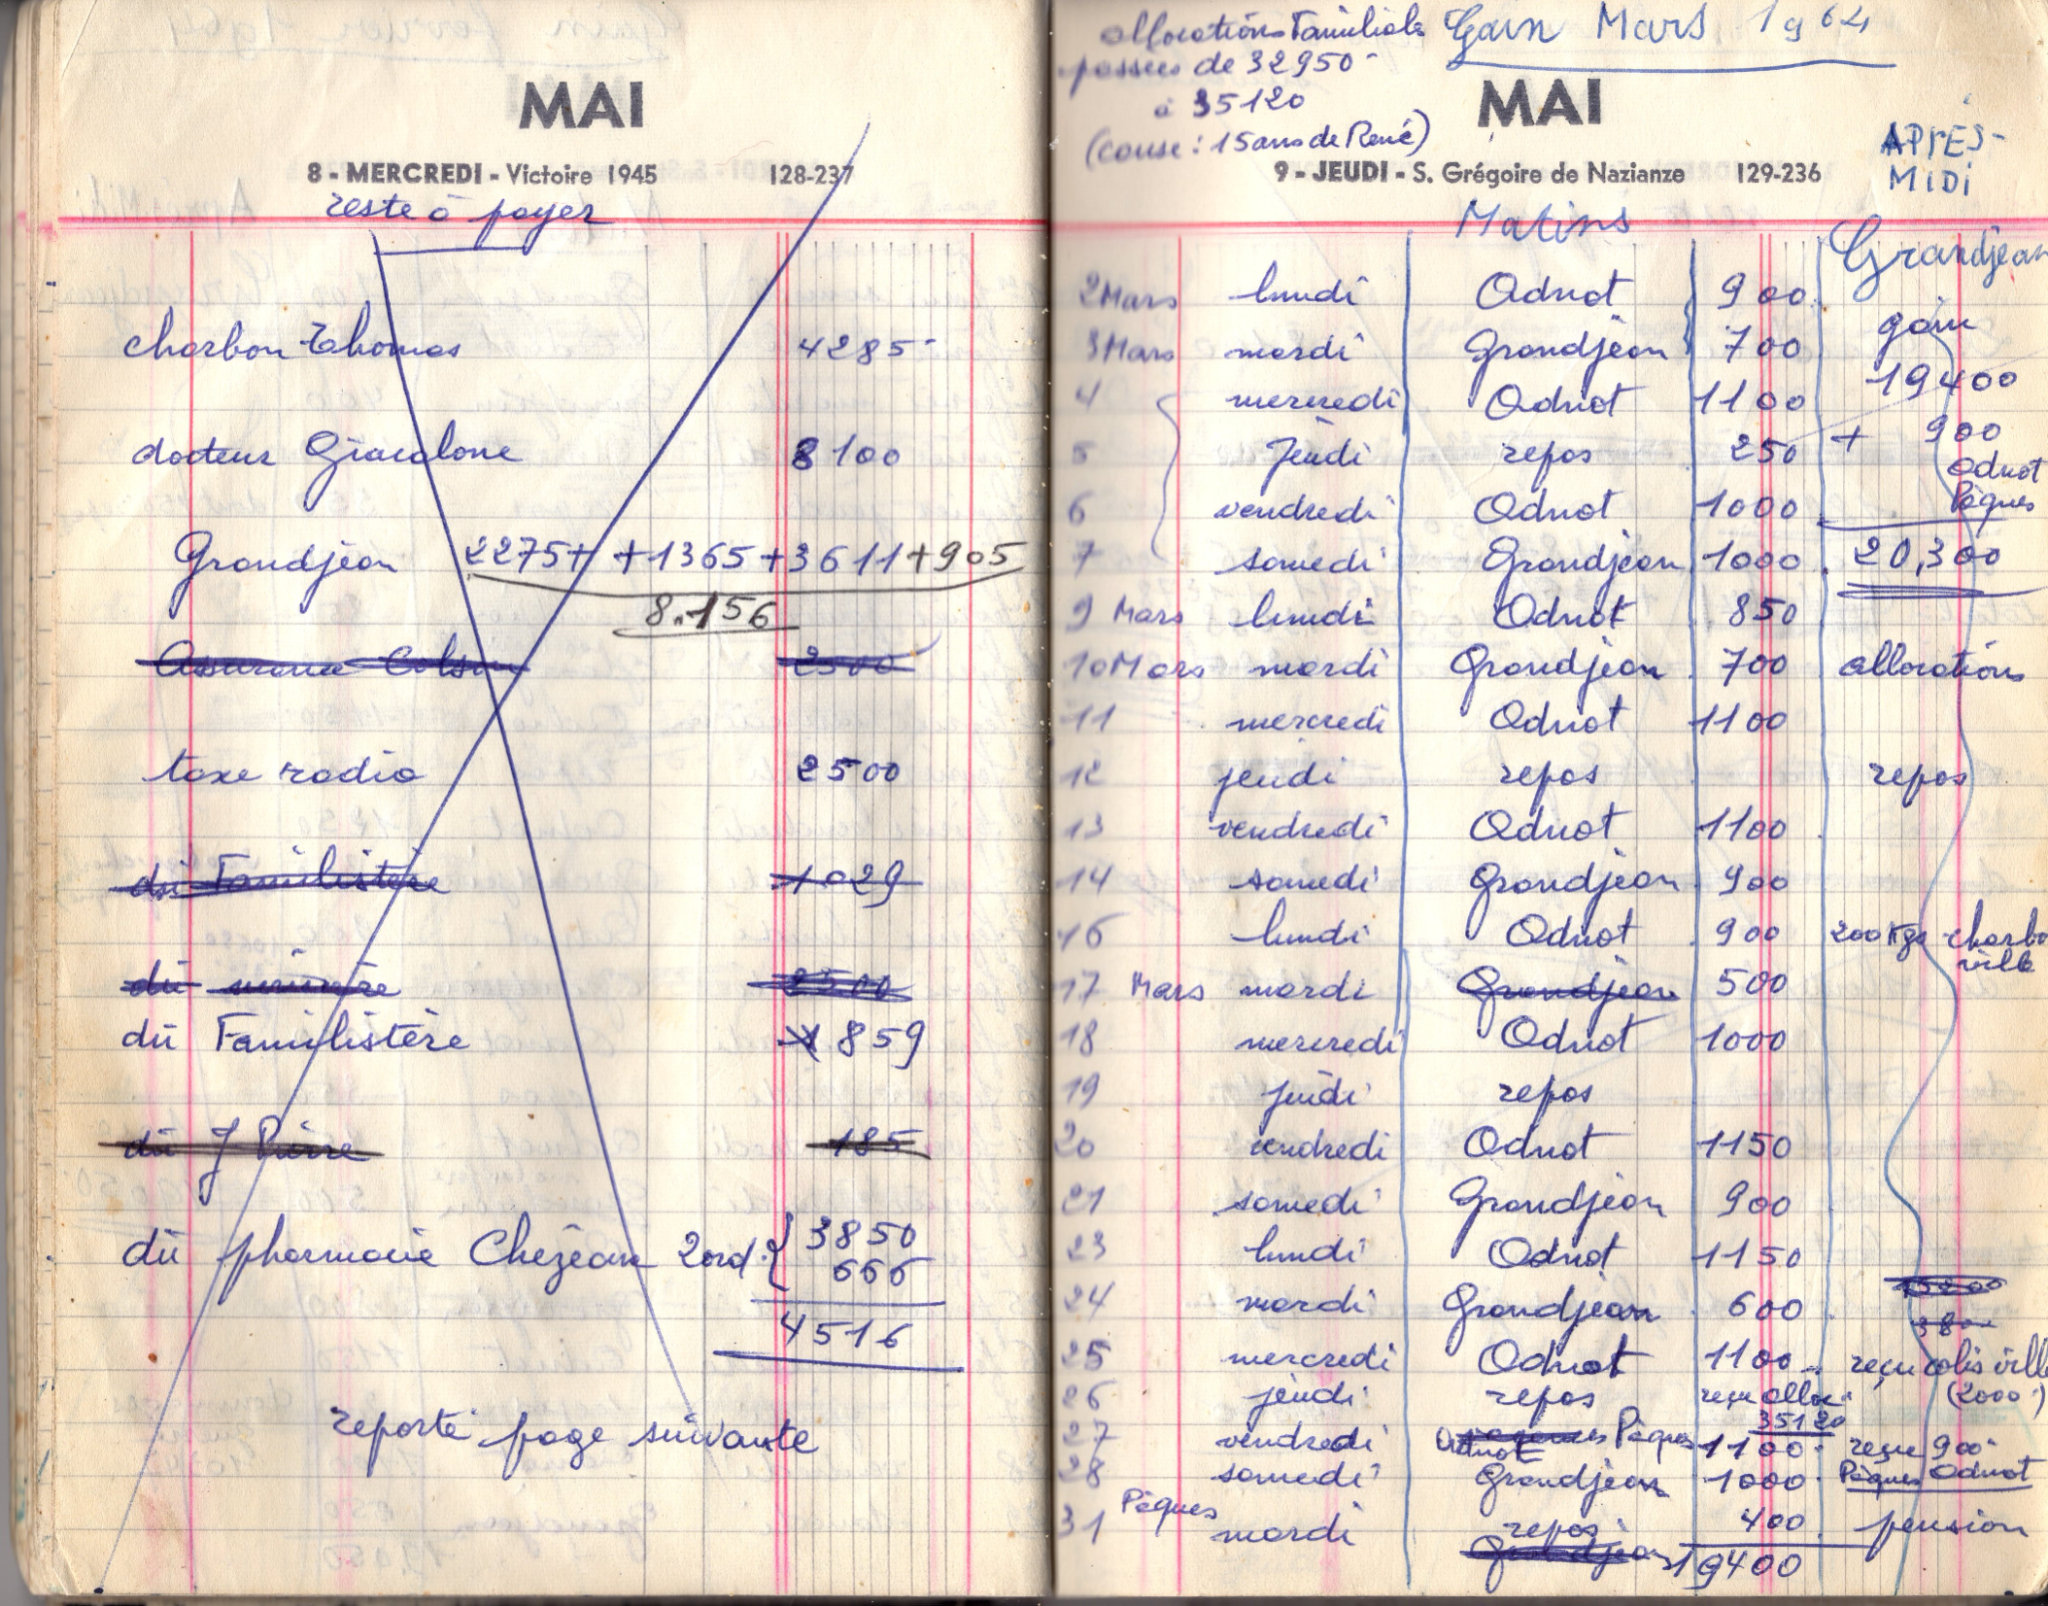 MAI
8 - MERCREDI - Victoire 1945 128-237
reste à payer
charbon Thomas 4285
docteur Giacalone 8100
Grandjean 2275+ +1365+3611+905
8.156
Assurance Colson 2500
taxe radio 2500
dû Familistère 1029
dû 2500
dû Familistère 1859
dû J Pierre 185
dû pharmacie Chézeau 2 ord. { 3850
666
4516
reporté page suivante
allocations Familiales
passées de 32950
à 35120
(cause : 15 ans de René)
Gain Mars 1964
MAI
9 - JEUDI - S. Grégoire de Nazianze 129-236
APRÉS-
MIDI
Matins
Grandjean
2 Mars lundi Odnot 900
gain
3 Mars mardi Grandjean 700
19400
4 mercredi Odnot 1100
+ 900
5 Jeudi repos 250
Odnot
Pâques
6 vendredi Odnot 1000
7 samedi Grandjean 1000
20,300
9 Mars lundi Odnot 850
10 Mars mardi Grandjean 700 allocations
11 mercredi Odnot 1100
12 jeudi repos repos
13 vendredi Odnot 1100
14 samedi Grandjean 900
16 lundi Odnot 900 200 Kgs charbo
ville
17 Mars mardi Grandjean 500
18 mercredi Odnot 1000
19 jeudi repos
20 vendredi Odnot 1150
21 samedi Grandjean 900
23 lundi Odnot 1150
24 mardi Grandjean 600
25 mercredi Odnot 1100 reçu colis ville
26 jeudi repos reçu alloc (2000)
35120
27 vendredi Odnot Pâques 1100 reçu 900
28 samedi Grandjean 1000 Pâques Odnot
Pâques
31 mardi repos 400 pension
Grandjean 19400